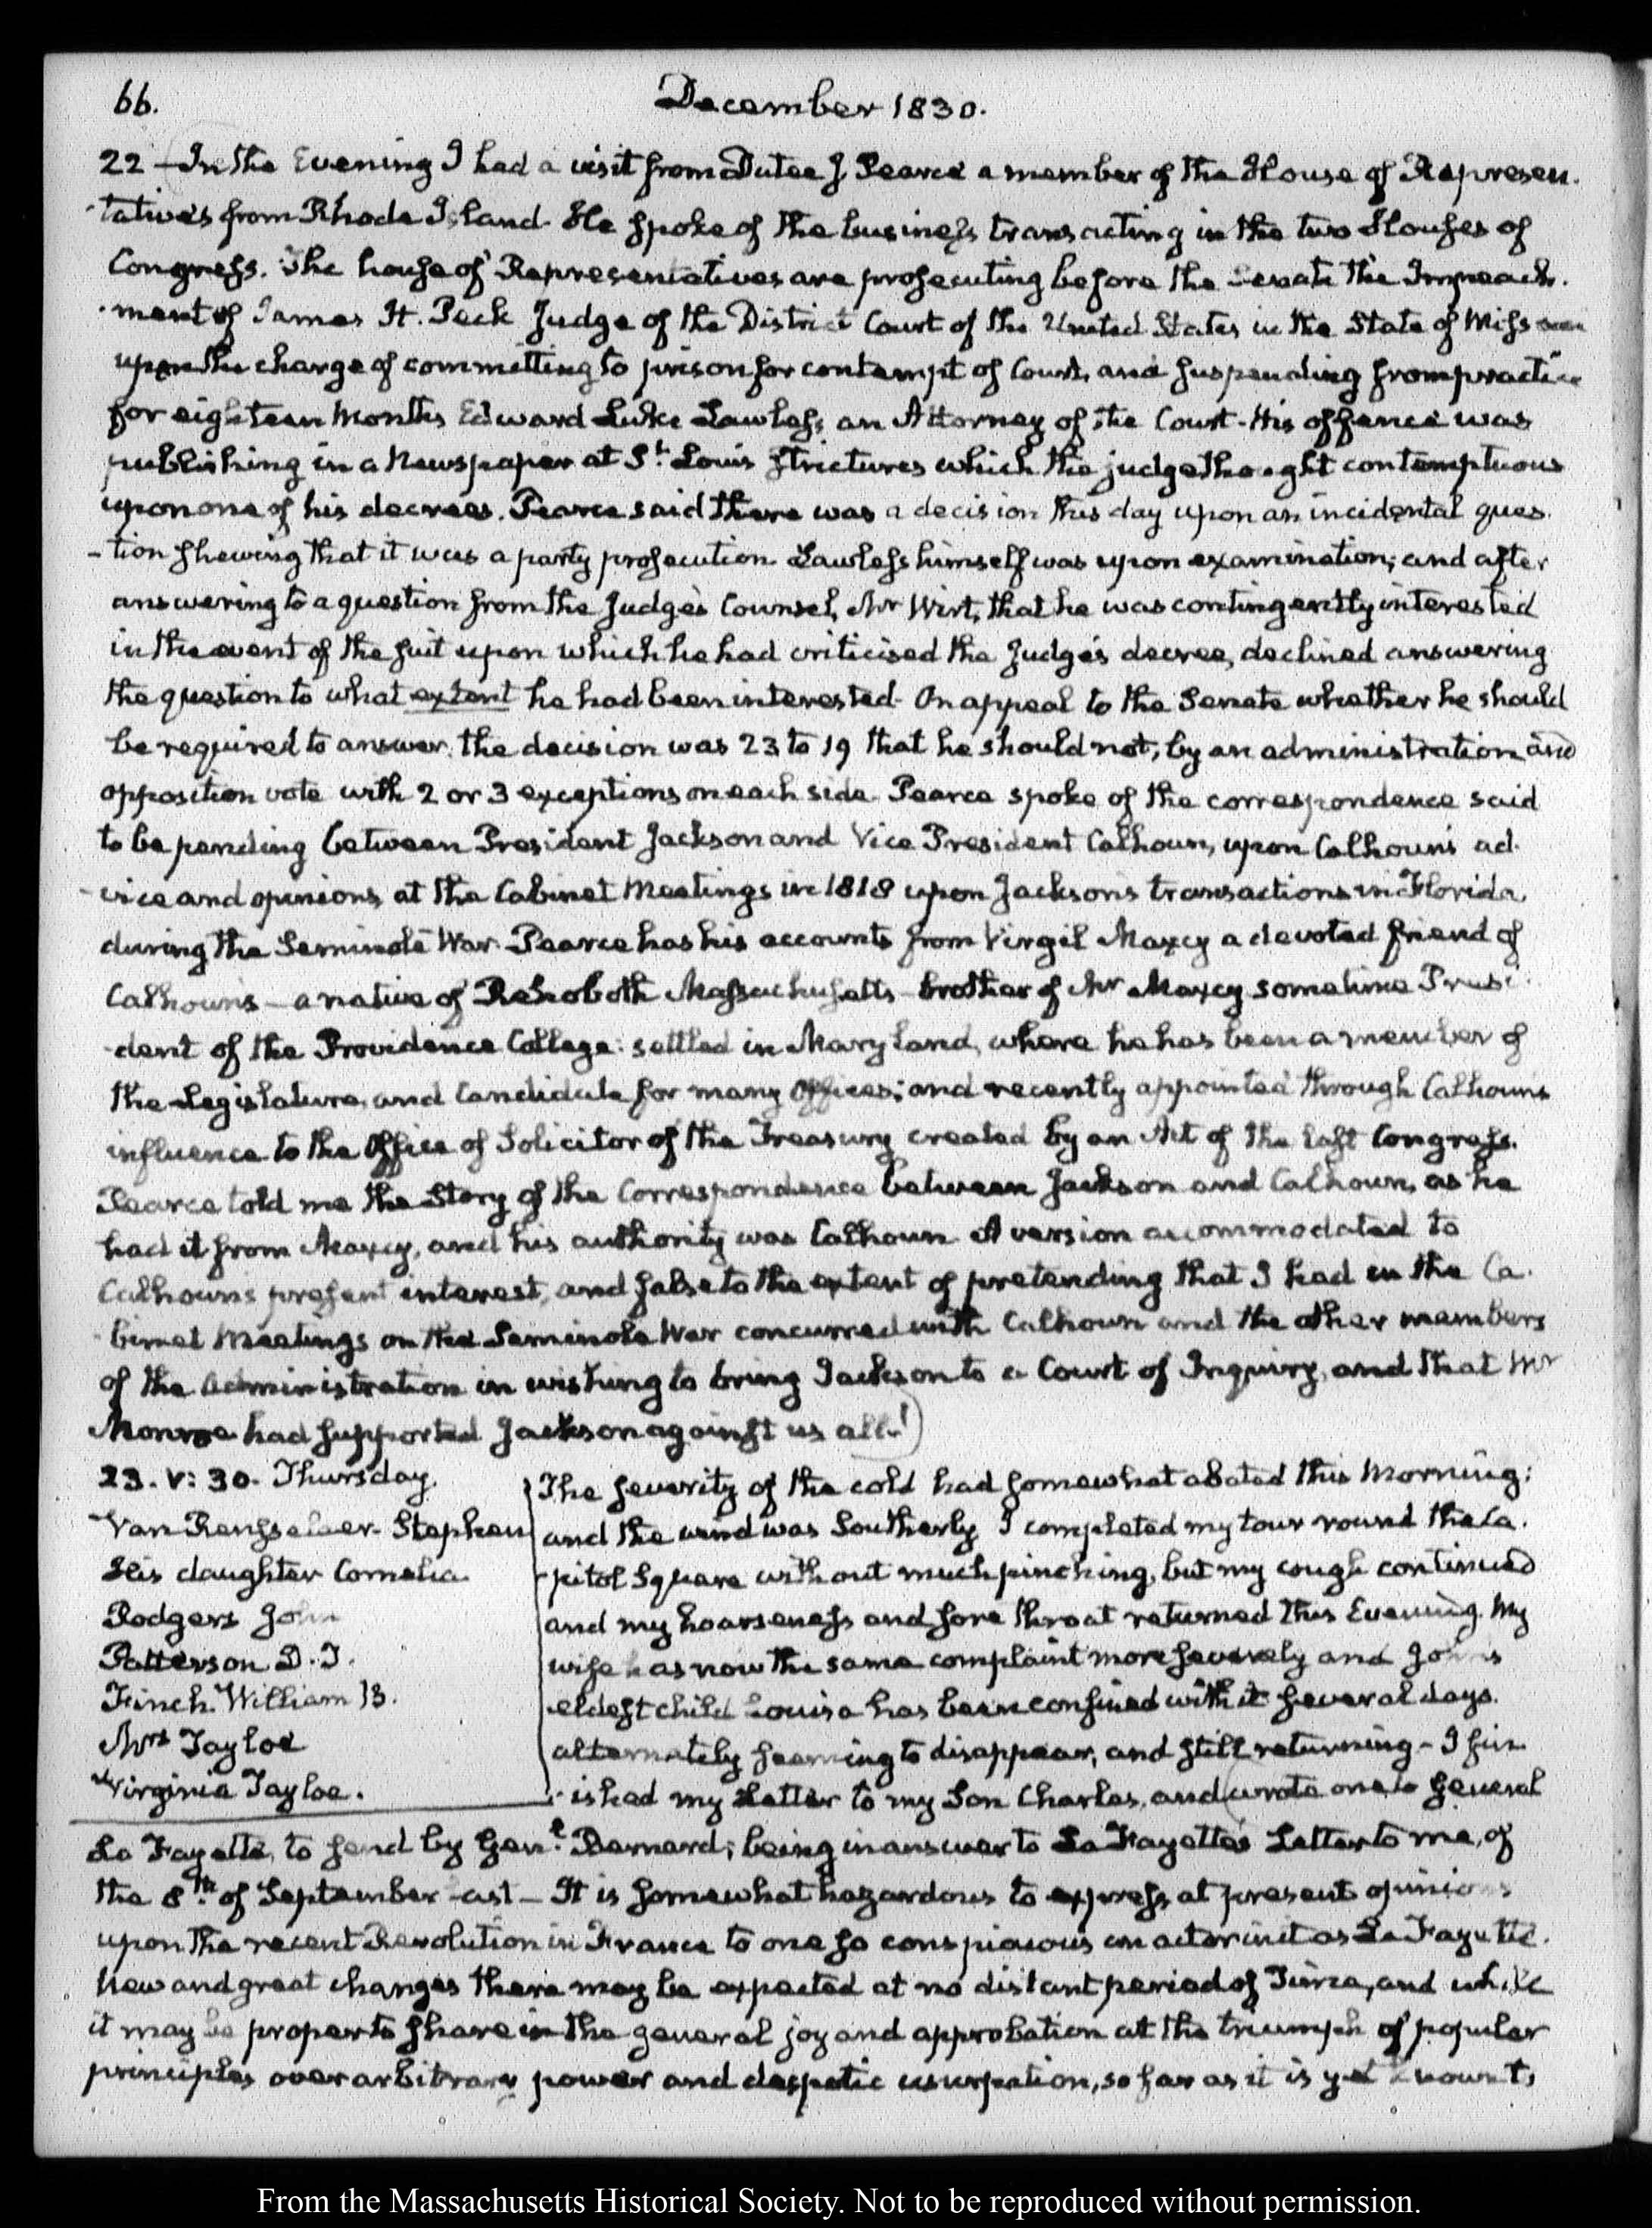 66.
December 1830.
22 — In the Evening I had a visit from Dutee J Pearce a member of the House of Represen-
-tatives from Rhode Island. He spoke of the business transacting in the two Houses of
Congress. The house of Representatives are prosecuting before the Senate the Impeach-
-ment of James H. Peck Judge of the District Court of the United States in the State of Missouri
upon the charge of committing to prison for contempt of Court, and suspending from practice
for eighteen Months Edward Luke Lawless an Attorney of the Court. His offence was
publishing in a Newspaper at St. Louis strictures which the judge thought contemptuous
upon one of his decrees. Pearce said there was a decision this day upon an incidental ques-
-tion shewing that it was a party prosecution. Lawless himself was upon examination; and after
answering to a question from the Judge's Counsel, Mr Wirt, that he was contingently interested
in the event of the suit upon which he had criticised the Judge's decree, declined answering
the question to what extent he had been interested. On appeal to the Senate whether he should
be required to answer, the decision was 23 to 19 that he should not; by an administration and
opposition vote with 2 or 3 exceptions on each side. Pearce spoke of the correspondence said
to be pending between President Jackson and Vice President Calhoun, upon Calhoun's ad-
-vice and opinions at the Cabinet Meetings in 1818 upon Jackson's transactions in Florida,
during the Seminole War. Pearce has his accounts from Virgil Maxcy a devoted friend of
Calhoun's — a native of Rehoboth Massachusetts brother of Mr Maxcy sometime Presi-
-dent of the Providence College: settled in Maryland, where he has been a member of
the Legislature, and Candidate for many Offices; and recently appointed through Calhoun's
influence to the Office of Solicitor of the Treasury created by an Act of the last Congress.
Pearce told me the Story of the Correspondence between Jackson and Calhoun, as he
had it from Maxcy, and his authority was Calhoun. A version accommodated to
Calhoun's present interest, and false to the extent of pretending that I had in the Ca-
-binet Meetings on the Seminole War concurred with Calhoun and the other members
of the Administration in wishing to bring Jackson to a Court of Inquiry, and that Mr
Monroe had supported Jackson against us all!)
23. V: 30. Thursday.
Van Rensselaer. Stephen
His daughter Cornelia.
Rodgers John
Patterson D. T.
Finch. William B.
Mrs Tayloe
Virginia Tayloe.
The severity of the cold had somewhat abated this Morning;
and the wind was Southerly. I completed my tour round the Ca-
-pitol Square without much pinching, but my cough continued
and my hoarseness and sore throat returned this Evening. My
wife has now the same complaint more severely and John's
eldest child Louisa has been confined with it several days.
alternately seeming to disappear, and still returning — I fin-
-ished my Letter to my Son Charles, and (wrote one to General
La Fayette, to send by Genl. Bernard; being in answer to La Fayette's Letter to me, of
the 8th. of September last — It is somewhat hazardous to express at present opinions
upon the recent Revolution in France to one so conspicuous an actor in it as La Fayette.
New and great changes there may be expected at no distant period of Time, and while
it may be proper to share in the general joy and approbation at the triumph of popular
principles over arbitrary power and despotic usurpation, so far as it is yet known to
From the Massachusetts Historical Society. Not to be reproduced without permission.